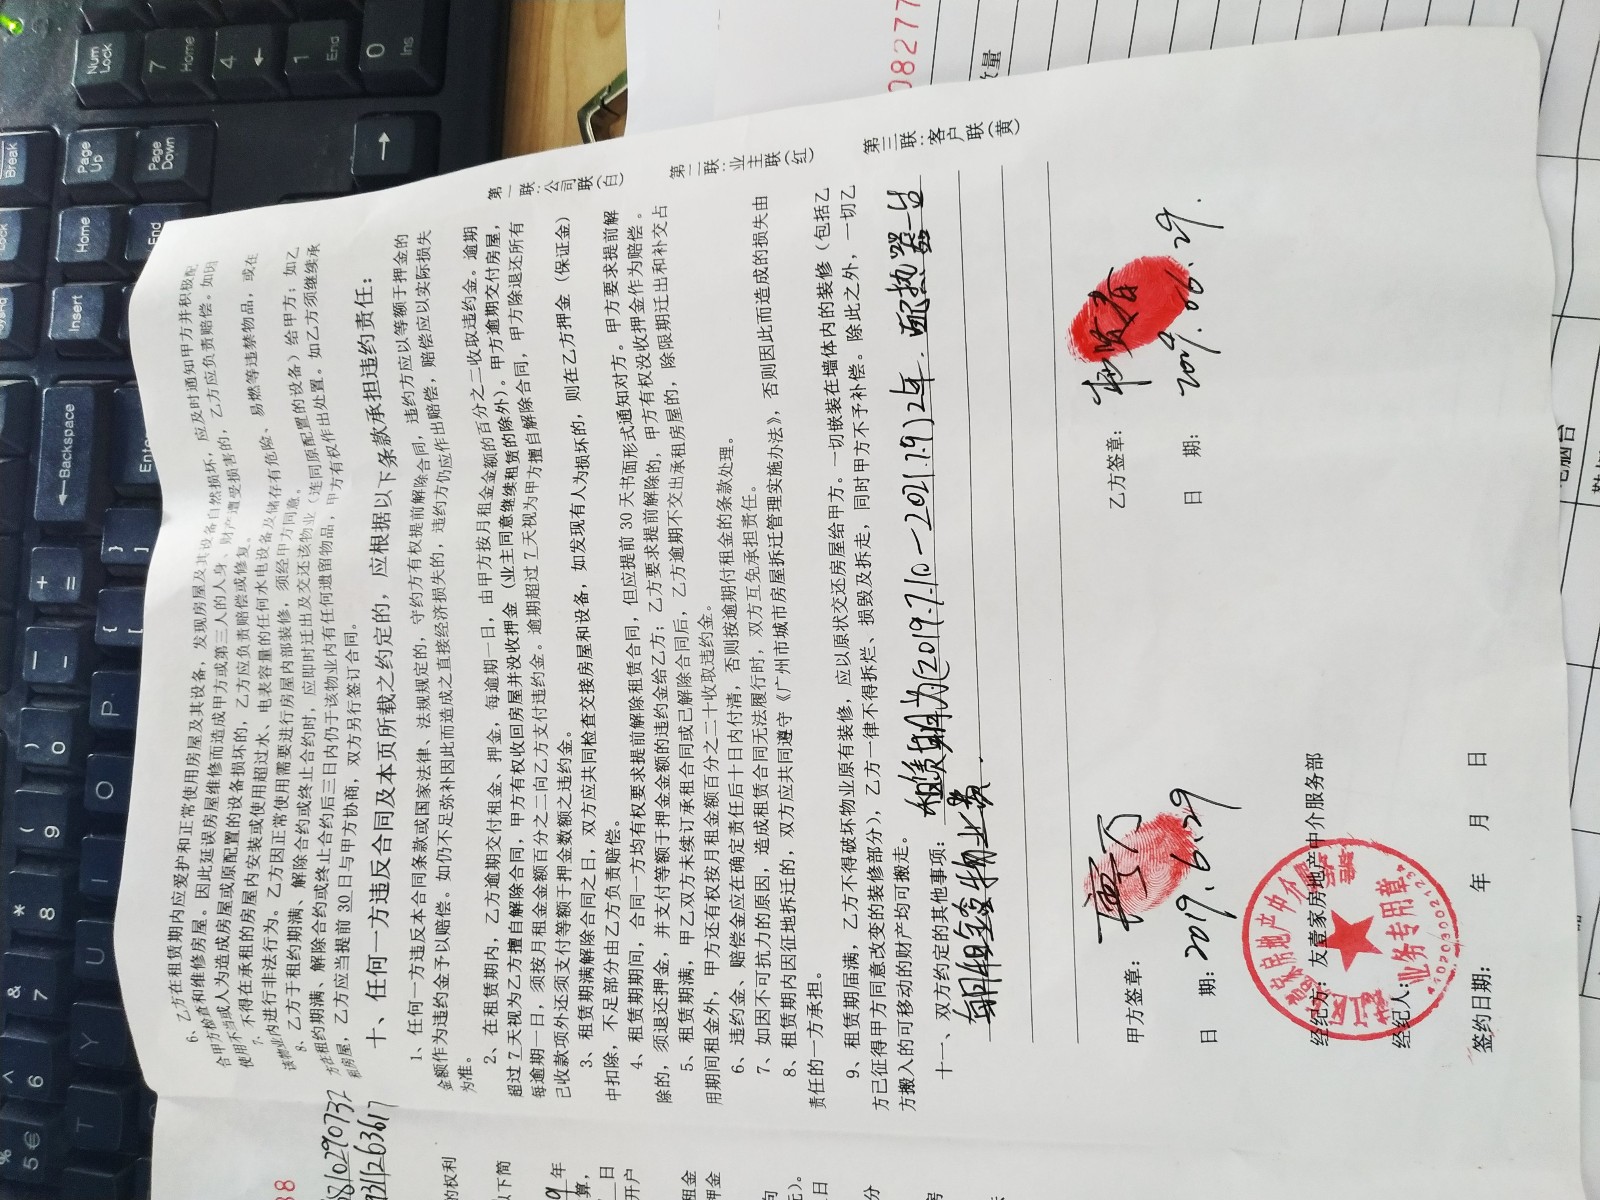 6、乙方在租赁期内应爱护和正常使用房屋及其设备，发现房屋及其设备自然损坏，应及时通知甲方并积极配
合甲方检查和维修房屋。因此延误房屋维修而造成甲方或第三人的人身、财产遭受损害的，乙方应负责赔偿。如因
使用不当或人为造成房屋或原配置的设备损坏的，乙方应负责赔偿或修复。
7、不得在承租的房屋内安装或使用超过水、电表容量的任何水电设备及储存有危险、易燃等违禁物品，或在
该物业内进行非法行为。乙方因正常使用需要进行房屋内部装修，须经甲方同意。
8、乙方于租约期满、解除合约或终止合约时，应即时迁出及交还该物业（连同原配置的设备）给甲方；如乙
方在租约期满、解除合约或终止合约后三日内仍于该物业内有任何遗留物品，甲方有权作出处置。如乙方须继续承
租房屋，乙方应当提前 30 日与甲方协商，双方另行签订合同。
十、任何一方违反合同及本页所载之约定的，应根据以下条款承担违约责任：
1、任何一方违反本合同条款或国家法律、法规规定的，守约方有权提前解除合同，违约方应以等额于押金的
金额作为违约金予以赔偿。如仍不足弥补因此而造成之直接经济损失的，违约方仍应作出赔偿，赔偿应以实际损失
为准。
2、在租赁期内，乙方逾期交付租金、押金，每逾期一日，由甲方按月租金金额的百分之二收取违约金。逾期
超过 7 天视为乙方擅自解除合同，甲方有权收回房屋并没收押金（业主同意继续租赁的除外）。甲方逾期交付房屋，
每逾期一日，须按月租金金额百分之二向乙方支付违约金。逾期超过 7 天视为甲方擅自解除合同，甲方除退还所有
已收款项外还须支付等额于押金数额之违约金。
3、租赁期满解除合同之日，双方应共同检查交接房屋和设备，如发现有人为损坏的，则在乙方押金（保证金）
中扣除，不足部分由乙方负责赔偿。
4、租赁期期间，合同一方均有权要求提前解除租赁合同，但应提前 30 天书面形式通知对方。甲方要求提前解
除的，须退还押金，并支付等额于押金金额的违约金给乙方；乙方要求提前解除的，甲方有权没收押金作为赔偿。
5、租赁期满，甲乙双方未续订承租合同或已解除合同后，乙方逾期不交出承租房屋的，除限期迁出和补交占
用期间租金外，甲方还有权按月租金额百分之二十收取违约金。
6、违约金、赔偿金应在确定责任后十日内付清，否则按逾期付租金的条款处理。
7、如因不可抗力的原因，造成租赁合同无法履行时，双方互免承担责任。
8、租赁期内因征地拆迁的，双方应共同遵守《广州市城市房屋拆迁管理实施办法》，否则因此而造成的损失由
责任的一方承担。
9、租赁期届满，乙方不得破坏物业原有装修，应以原状交还房屋给甲方。一切嵌装在墙体内的装修（包括乙
方已征得甲方同意改变的装修部分），乙方一律不得拆烂、损毁及拆走，同时甲方不予补偿。除此之外，一切乙
方搬入的可移动的财产均可搬走。
十一、双方约定的其他事项：租赁期为(2019.7.10-2021.7.9)2年.配热器一台
每月租金含物业费.
甲方签章：
日 期：2019.6.29
乙方签章：
日 期：2019.06.29.
经纪方：友壹家房地产中介服务部
经纪人：
签约日期： 年 月 日
业务专用章
第一联：公司联（白）
第二联：业主联（红）
第三联：客户联（黄）
08277
数量
电脑台
Num Lock
7 Home
4 ←
1 End
0 Ins
Break
Page Up
Page Down
Home
End
Insert
←Backspace
Enter